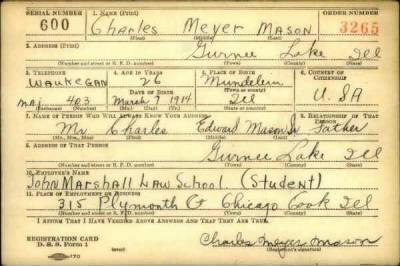 SERIAL NUMBER 1. NAME (Print) ORDER NUMBER
600 Charles Meyer Mason 3265
(First) (Middle) (Last)
2. ADDRESS (Print)
Gurnee Lake Ill
(Number and street or R. F. D. number) (Town) (County) (State)
3. TELEPHONE 4. AGE IN YEARS 5. PLACE OF BIRTH 6. COUNTRY OF CITIZENSHIP
Waukegan 26 Mundelein
DATE OF BIRTH (Town or county)
Maj. 403 March 7 1914 Ill U.SA
(Exchange) (Number) (Mo.) (Day) (Yr.) (State or country)
7. NAME OF PERSON WHO WILL ALWAYS KNOW YOUR ADDRESS 8. RELATIONSHIP OF THAT PERSON
Mr Charles Edward Mason Sr Father
(Mr., Mrs., Miss) (First) (Middle) (Last)
9. ADDRESS OF THAT PERSON
Gurnee Lake Ill
(Number and street or R. F. D. number) (Town) (County) (State)
10. EMPLOYER'S NAME
John Marshall Law School (Student)
11. PLACE OF EMPLOYMENT OR ADDRESS
315 Plymouth Ct Chicago Cook Ill
(Number and street or R. F. D. number) (Town) (County) (State)
I AFFIRM THAT I HAVE VERIFIED ABOVE ANSWERS AND THAT THEY ARE TRUE.
REGISTRATION CARD
D. S. S. Form 1 Charles Meyer Mason
(Registrant's signature)